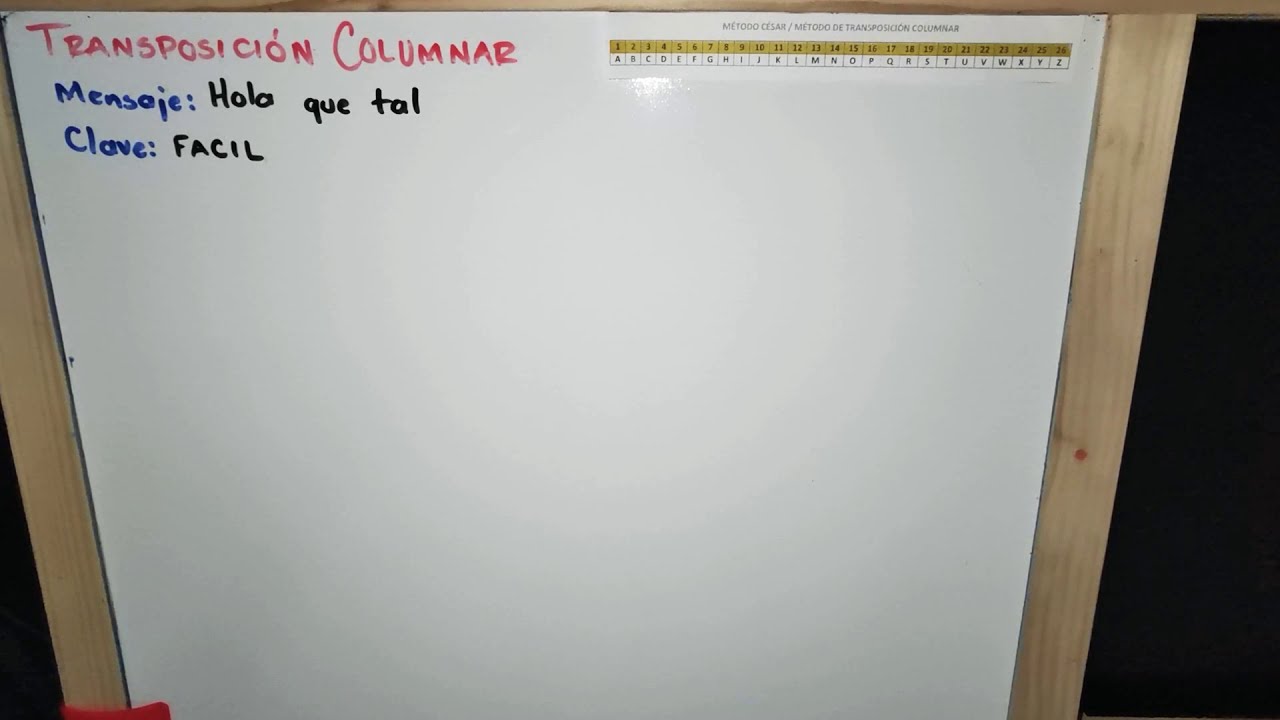 TRANSPOSICIÓN COLUMNAR
MÉTODO CÉSAR / MÉTODO DE TRANSPOSICIÓN COLUMNAR
1 2 3 4 5 6 7 8 9 10 11 12 13 14 15 16 17 18 19 20 21 22 23 24 25 26
A B C D E F G H I J K L M N O P Q R S T U V W X Y Z
Mensaje: Hola que tal
Clave: FACIL